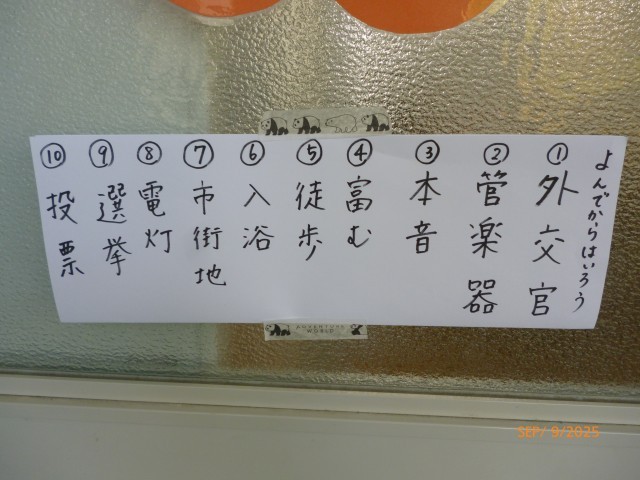 よんでからはいろう
①外交官
②管楽器
③本音
④富む
⑤徒歩
⑥入浴
⑦市街地
⑧電灯
⑨選挙
⑩投票
ADVENTURE
WORLD
SEP/ 9/2025